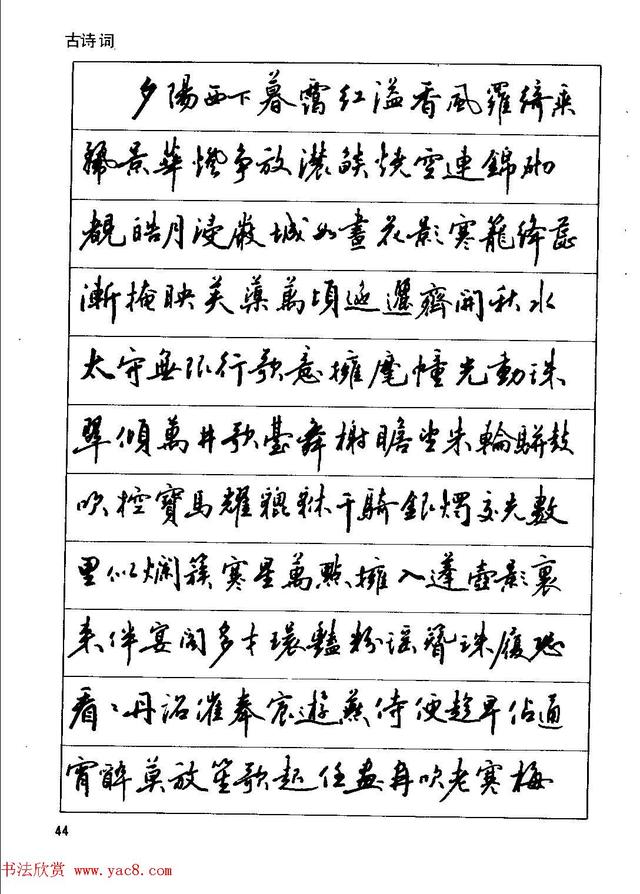 古诗词
夕陽西下暮靄紅溢香風羅綺乘
麗景華燈爭放濃燄燒空連錦砌
覩皓月浸嚴城如畫花影寒籠絳蕊
漸掩映芙蕖萬頃迤邐齊開秋水
太守無限行歌意擁麾幢光動珠
翠傾萬井歌臺舞榭瞻望朱輪駢鼓
吹控寶馬耀貔貅千騎銀燭交光數
里似爛簇寒星萬點擁入蓬壺影裏
來伴宴閣多才環豔粉瑤簪珠履恐
看看丹詔催奉宸遊燕侍便趁早佔通
宵醉莫放笙歌起任畫角吹老寒梅
44
书法欣赏 www.yac8.com